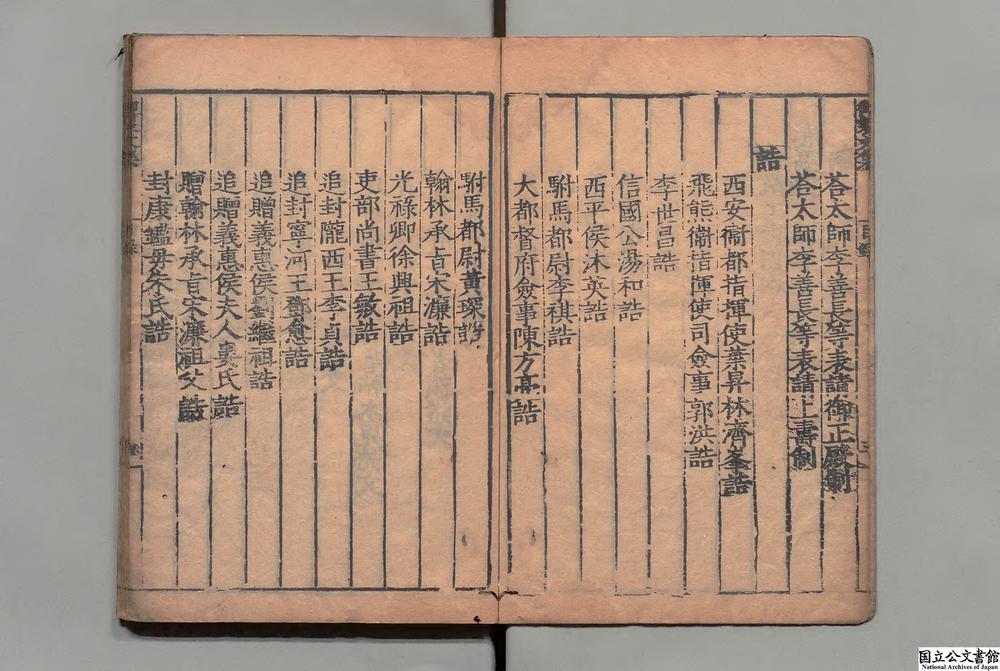 荅太師李善長等表請御正殿制
荅太師李善長等表請上壽制
誥
西安衛都指揮使葉昇林濟峯誥
飛熊衛指揮使司僉事郭洪誥
李世昌誥
信國公湯和誥
西平侯沐英誥
駙馬都尉李祺誥
大都督府僉事陳方亮誥
駙馬都尉黃琛誥
翰林承旨宋濂誥
光祿卿徐興祖誥
吏部尚書王敏誥
追封隴西王李貞誥
追封寧河王鄧愈誥
追贈義惠侯劉繼祖誥
追贈義惠侯夫人婁氏誥
贈翰林承旨宋濂祖父誥
封康鑑母朱氏誥
国立公文書館
National Archives of Japan